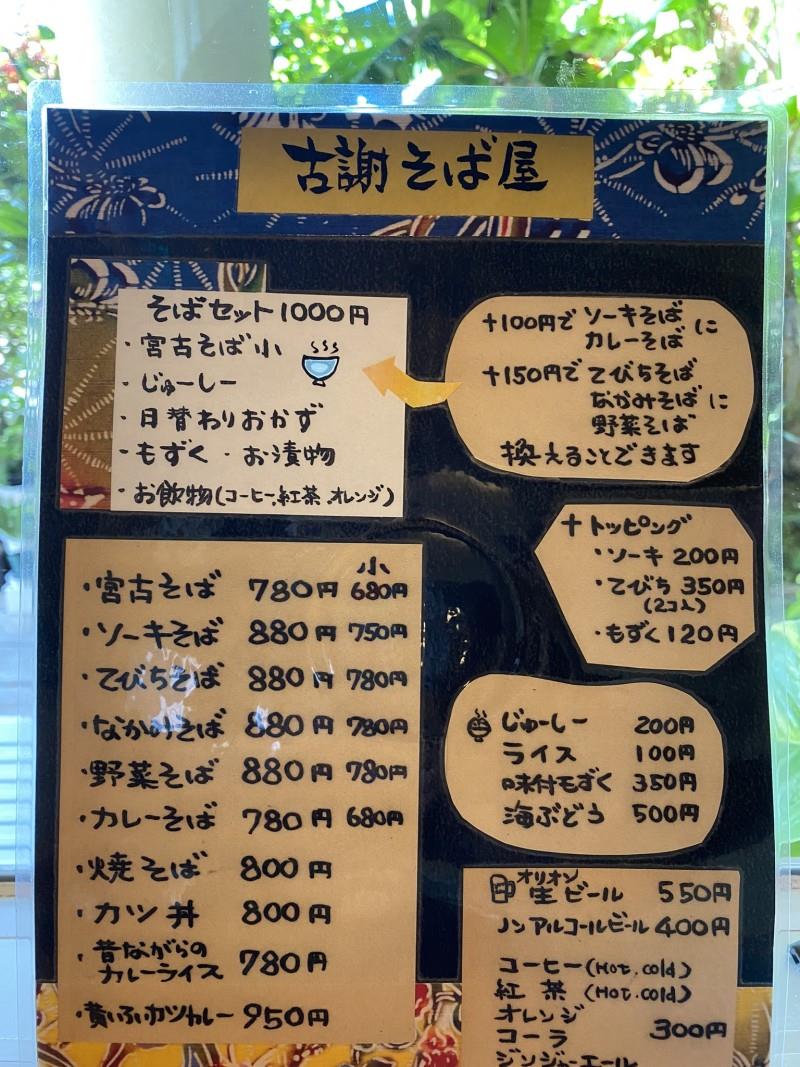 古謝そば屋
そばセット1000円
・宮古そば小
・じゅーしー
・日替わりおかず
・もずく・お漬物
・お飲物(コーヒー.紅茶.オレンジ)
+100円で ソーキそば
カレーそば に
+150円で てびちそば
なかみそば に
野菜そば
換えることできます
+トッピング
・ソーキ 200円
・てびち 350円
(2コ入)
・もずく 120円
小
・宮古そば 780円 680円
・ソーキそば 880円 750円
・てびちそば 880円 780円
・なかみそば 880円 780円
・野菜そば 880円 780円
・カレーそば 780円 680円
・焼そば 800円
・カツ丼 800円
・昔ながらの
カレーライス 780円
・黄いろカツカレー 950円
じゅーしー 200円
ライス 100円
味付もずく 350円
海ぶどう 500円
オリオン
生ビール 550円
ノンアルコールビール 400円
コーヒー(Hot.cold)
紅茶(Hot.cold)
オレンジ
コーラ 300円
ジンジャーエール